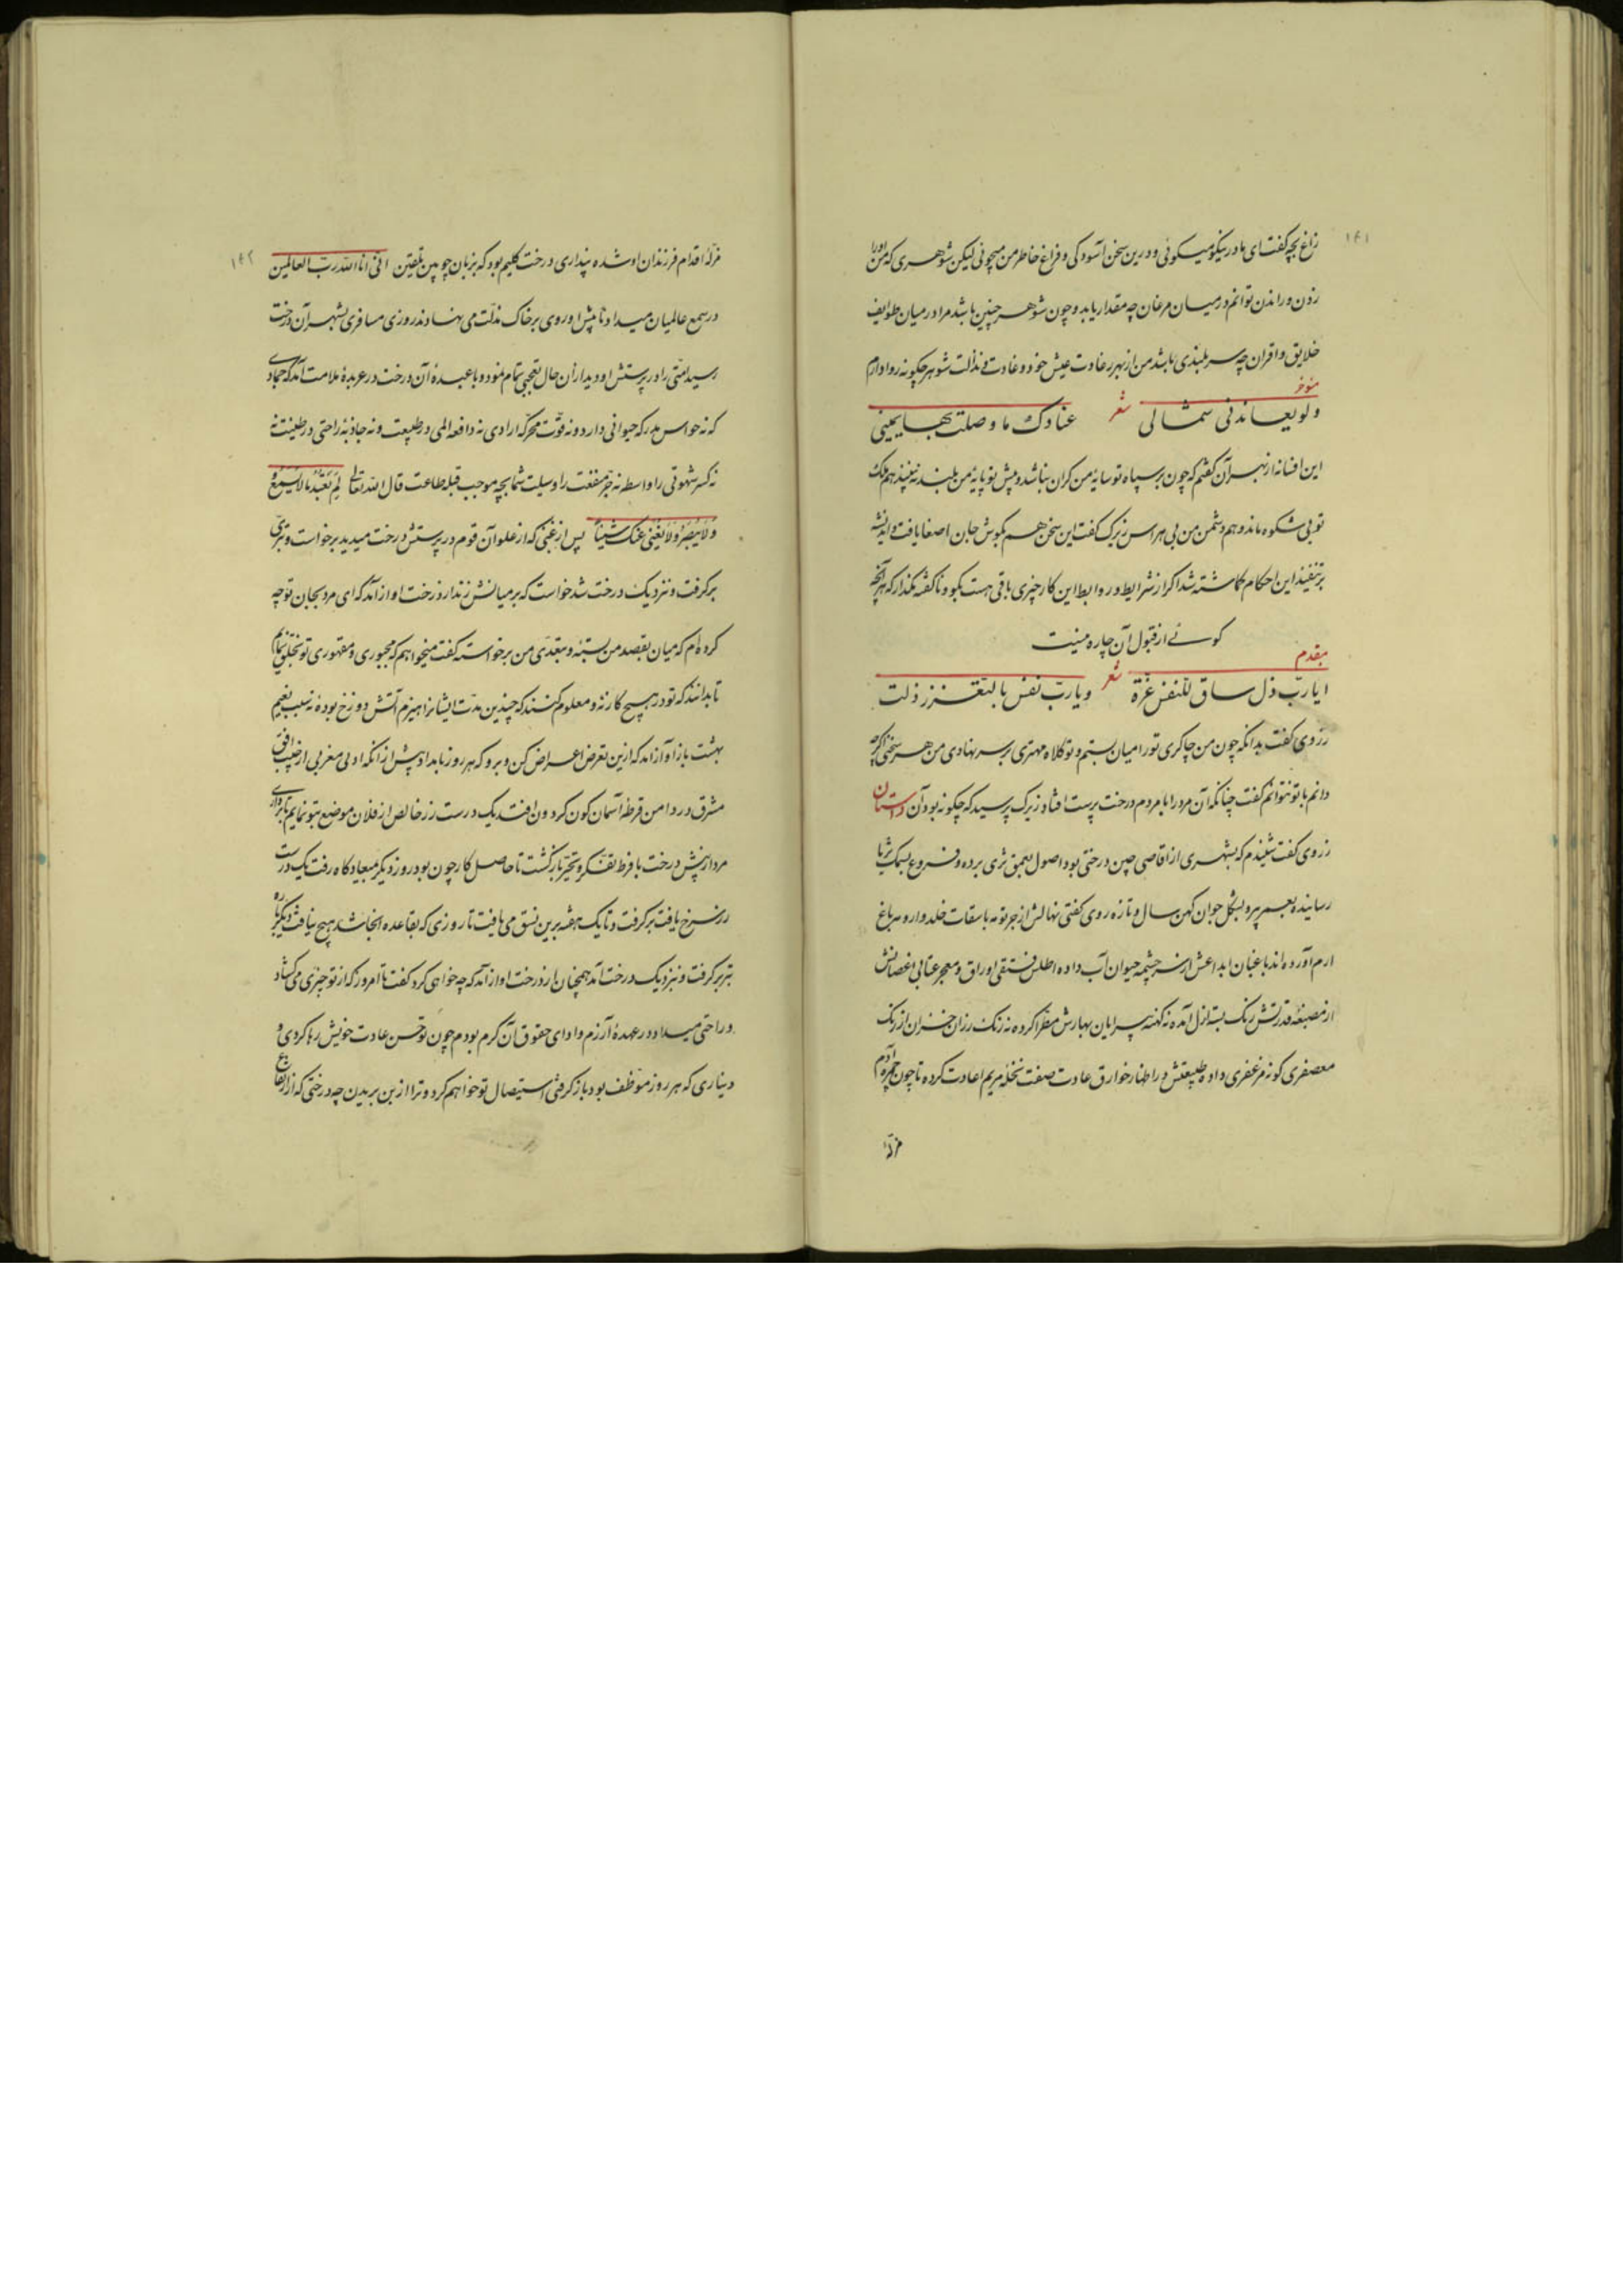 ۱۴۱
زاغ بچه گفت ای مادر نیکو میگوئی و درین سخن آسودگی و فراغ خاطر من میجوئی لیکن شوهری که من او را
زدن و راندن توانم در میان مرغان چه مقدار یابد و چون شوهر چنین باشد مرا در میان طوایف
خلایق و اقران چه سربلندی باشد من از بهر رغادت عیش خود و غادت مذلت شوهر چگونه روا دارم
مؤخر
ولو یعاندنی شمالی شعر عنادک ما وصلت بها یمینی
این افسانه از بهر آن گفتم که چون بر سپاه تو سایه من گران نباشد و پیش تو پایه من بلند نه‌بینند هم ملک
تو بی شکوه ماند و هم دشمن من بی هراس زیرک گفت این سخن هم بگوش جان اصغا یافت و اندیشه
بر تنفیذ این احکام گماشته شد اگر از شرایط و روابط این کار چیزی باقی هست بگو و ناگفته مگذار که هر آنچه
گوئے از قبول آن چاره نیست
مقدم
ایا ربّ ذل ساق للنفس عزة شعر و یا ربّ نفس بالتعزز ذلت
زروی گفت بدانکه چون من چاکری تو را میان بستم و تو کلاه مهتری بر سر نهادی من هر سخنی اگرچه
دانم با تو نتوانم گفت چنانکه آن مرد را با مردم درخت پرست افتاد زیرک پرسید که چگونه بود آن داستان
زروی گفت شنیدم که بشهری از اقاصی چین درختی بود اصول بعمق ثری برده و فروع بسمک ثریا
رسانیده بعمر پیر و بشکل جوان کهن سال و تازه روی گفتی نهالش از جرثومه باسقات خلد و ارومه باغ
ارم آورده‌اند باغبان ابداعش از سرچشمه حیوان آب داده اطلس فستقی اوراق و معجر عنابی اغصانش
از مصبغه قدرتش رنگ بسته ازل آمده نه کهنه پیرایان بهارش مطرا کرده نه رنگ رزان خزان از رنگ
معصفری گونه مزعفری داده طبیعتش در اظهار خوارق عادت صفت نخله مریم اعادت کرده تا چون شجره آدم
مزلّه
۱۴۲
مزلّه اقدام فرزندان او شده پنداری درخت کلیم بود که بزبان چوبین تلقین انی انا الله ربّ العالمین
در سمع عالمیان میداد تا پیش او روی بر خاک مذلّت می نهادند روزی مسافری بشهر آن درخت
رسید امتی را در پرستش او دید از آن حال تعجبی تمام نمود و با عبده آن درخت در عربده ملامت آمد که جمادی
که نه حواس مدرکه حیوانی دارد و نه قوّت محرّکه ارادی نه دافعه المی در طبیعت و نه جاذبه راحتی در طینت نه
کسر شهوتی را واسطه نه جرّ منفعت را وسیلت شما بچه موجب قبله طاعت قال الله تعالی لِمَ تَعْبُدُ مَا لَا یَسْمَعُ وَ
وَلَا یُبْصِرُ وَلَا یُغْنِی عَنْکَ شَیْئاً پس از غبنی که از غلو آن قوم در پرستش درخت میدید برخواست و تبری
برگرفت و نزدیک درخت شد خواست که بر میانش زند از درخت آواز آمد که ای مرد بجان تو چه
کرده‌ام که میان بقصد من بسته و بتعدّی من برخواسته گفت میخواهم که مجبوری و مقهوری تو بخلق نمایم
تا بدانند که تو در هیچ کار نه و معلوم کنند که چندین مدّت ایشانرا هیزم آتش دوزخ بودهٔ نه سبب نعیم
بهشت باز آواز آمد که ازین تعرض اعراض کن و برو که هر روز بامداد پیش از آنکه ادبی مغربی از جیب افق
مشرق در دامن قرطه آسمان گون گردون افتد یک درست زر خالص از فلان موضع بتو نمایم تا برداری
مرد از پیش درخت با فرط تفکّر و تحیّر بازگشت تا حاصل کار چون بود روز دیگر بمیعادگاه رفت یک درست
زر سرخ یافت برگرفت و تا یک هفته برین نسق می یافت تا روزی که بقاعده آنجا شد هیچ نیافت دیگر باره
تبر برگرفت و نزدیک درخت آمد همچنان از درخت آواز آمد که چه خواهی کرد گفت تا امروز که از تو چیزی می گشاد
و راحتی میداد در عهدهٔ آزرم و ادای حقوق آن کرم بودم چون تو حسن عادت خویش رها کردی و
دیناری که هر روز موظّف بود باز گرفتی استیصال تو خواهم کرد و ترا از بن بریدن چه درختی که از او انتفاع